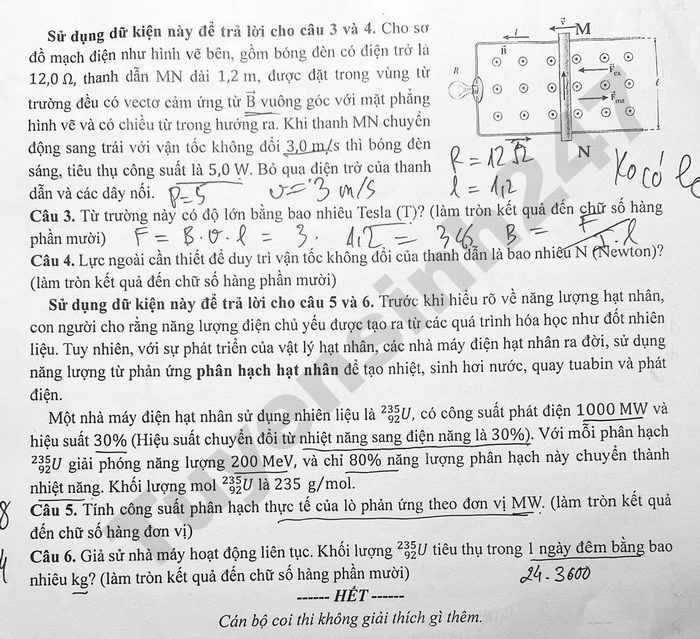 Sử dụng dữ kiện này để trả lời cho câu 3 và 4. Cho sơ
đồ mạch điện như hình vẽ bên, gồm bóng đèn có điện trở là
12,0 Ω, thanh dẫn MN dài 1,2 m, được đặt trong vùng từ
trường đều có vectơ cảm ứng từ B⃗ vuông góc với mặt phẳng
hình vẽ và có chiều từ trong hướng ra. Khi thanh MN chuyển
động sang trái với vận tốc không đổi 3,0 m/s thì bóng đèn
sáng, tiêu thụ công suất là 5,0 W. Bỏ qua điện trở của thanh
dẫn và các dây nối.
I
v⃗
M
B⃗
R
F⃗cx
F⃗ma
ℓ
I
N
P=5
v = 3 m/s
R = 12 Ω
l = 1,2
Ko có
Câu 3. Từ trường này có độ lớn bằng bao nhiêu Tesla (T)? (làm tròn kết quả đến chữ số hàng
phần mười)
F = B.v.l = 3. 1,2 = 3,6 B = F
.l
Câu 4. Lực ngoài cần thiết để duy trì vận tốc không đổi của thanh dẫn là bao nhiêu N (Newton)?
(làm tròn kết quả đến chữ số hàng phần mười)
Sử dụng dữ kiện này để trả lời cho câu 5 và 6. Trước khi hiểu rõ về năng lượng hạt nhân,
con người cho rằng năng lượng điện chủ yếu được tạo ra từ các quá trình hóa học như đốt nhiên
liệu. Tuy nhiên, với sự phát triển của vật lý hạt nhân, các nhà máy điện hạt nhân ra đời, sử dụng
năng lượng từ phản ứng phân hạch hạt nhân để tạo nhiệt, sinh hơi nước, quay tuabin và phát
điện.
Một nhà máy điện hạt nhân sử dụng nhiên liệu là ²³⁵₉₂U, có công suất phát điện 1000 MW và
hiệu suất 30% (Hiệu suất chuyển đổi từ nhiệt năng sang điện năng là 30%). Với mỗi phân hạch
²³⁵₉₂U giải phóng năng lượng 200 MeV, và chỉ 80% năng lượng phân hạch này chuyển thành
nhiệt năng. Khối lượng mol ²³⁵₉₂U là 235 g/mol.
Câu 5. Tính công suất phân hạch thực tế của lò phản ứng theo đơn vị MW. (làm tròn kết quả
đến chữ số hàng đơn vị)
Câu 6. Giả sử nhà máy hoạt động liên tục. Khối lượng ²³⁵₉₂U tiêu thụ trong 1 ngày đêm bằng bao
nhiêu kg? (làm tròn kết quả đến chữ số hàng phần mười)
24.3600
------ HẾT ------
Cán bộ coi thi không giải thích gì thêm.
Tuyensinh247